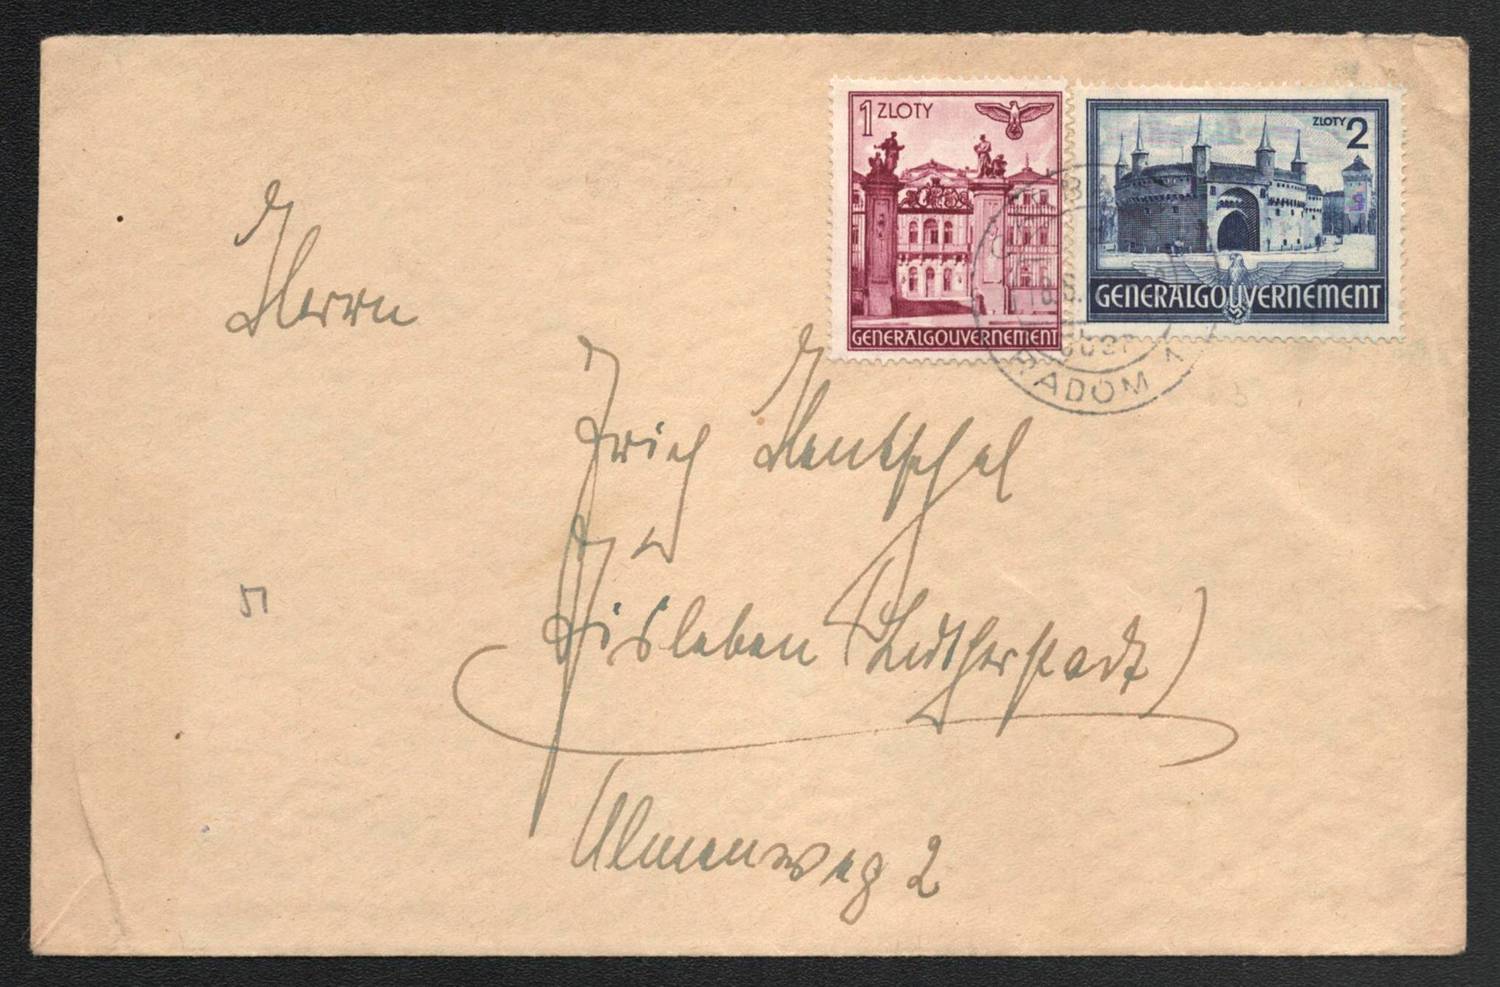 1 ZLOTY
GENERALGOUVERNEMENT
ZLOTY 2
GENERALGOUVERNEMENT
RADOM 1
Herrn
Erich Hentschel
in
Eisleben (Lutherstadt)
Ulmenweg 2